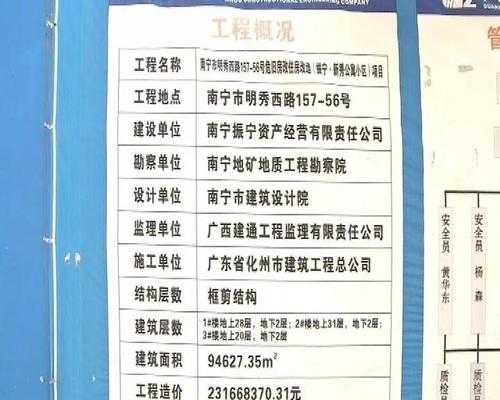 工程概况
工程名称 南宁市明秀西路157-56号危旧房改住房改造(振宁·新秀公寓小区)项目
工程地点 南宁市明秀西路157-56号
建设单位 南宁振宁资产经营有限责任公司
勘察单位 南宁地矿地质工程勘察院
设计单位 南宁市建筑设计院
监理单位 广西建通工程监理有限责任公司
施工单位 广东省化州市建筑工程总公司
结构层数 框剪结构
建筑层数 1#楼地上28层，地下2层；2#楼地上31层，地下2层；
3#楼地上20层，地下2层
建筑面积 94627.35m²
工程造价 231668370.31元
管
安全员 黄华东
安全员 杨森
质检员
质检员